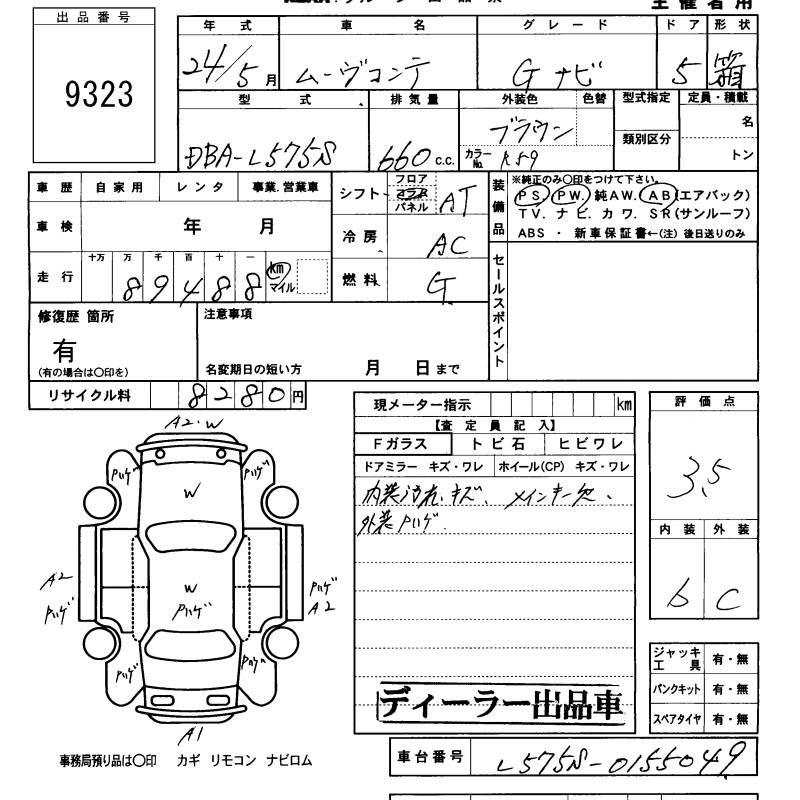 主催者用
出品番号
9323
年式 車名 グレード ドア 形状
24/5月 ムーヴコンテ Gナビ 5 箱
型式 排気量 外装色 色替 型式指定 定員・積載
DBA-L575S 660c.c. ブラウン 類別区分 名
カラーNo. R59 トン
車歴 自家用 レンタ 事業.営業車
車検 年 月
走行 十万 万 千 百 十 一 km マイル
89488
シフト フロア コラム パネル AT
冷房 AC
燃料 G
装備品 ※純正のみ○印をつけて下さい。
PS. PW. 純AW. AB(エアバック)
TV. ナビ. カワ. SR(サンルーフ)
ABS ・ 新車保証書←(注) 後日送りのみ
セールスポイント
修復歴 箇所 注意事項
有
(有の場合は○印を) 名変期日の短い方 月 日まで
リサイクル料 8280円
現メーター指示 km
【査定員記入】
Fガラス トビ石 ヒビワレ
ドアミラー キズ・ワレ ホイール(CP) キズ・ワレ
内装汚れ、キズ、メインキー欠、
外装Pハゲ.
ディーラー出品車
評価点
3.5
内装 外装
b C
ジャッキ工具 有・無
パンクキット 有・無
スペアタイヤ 有・無
A2.W
Pハゲ Pハゲ
W
W
A2 Pハゲ Pハゲ
Pハゲ A2
Pハゲ Pハゲ
A1
事務局預り品は○印 カギ リモコン ナビロム
車台番号 L575S-0155049